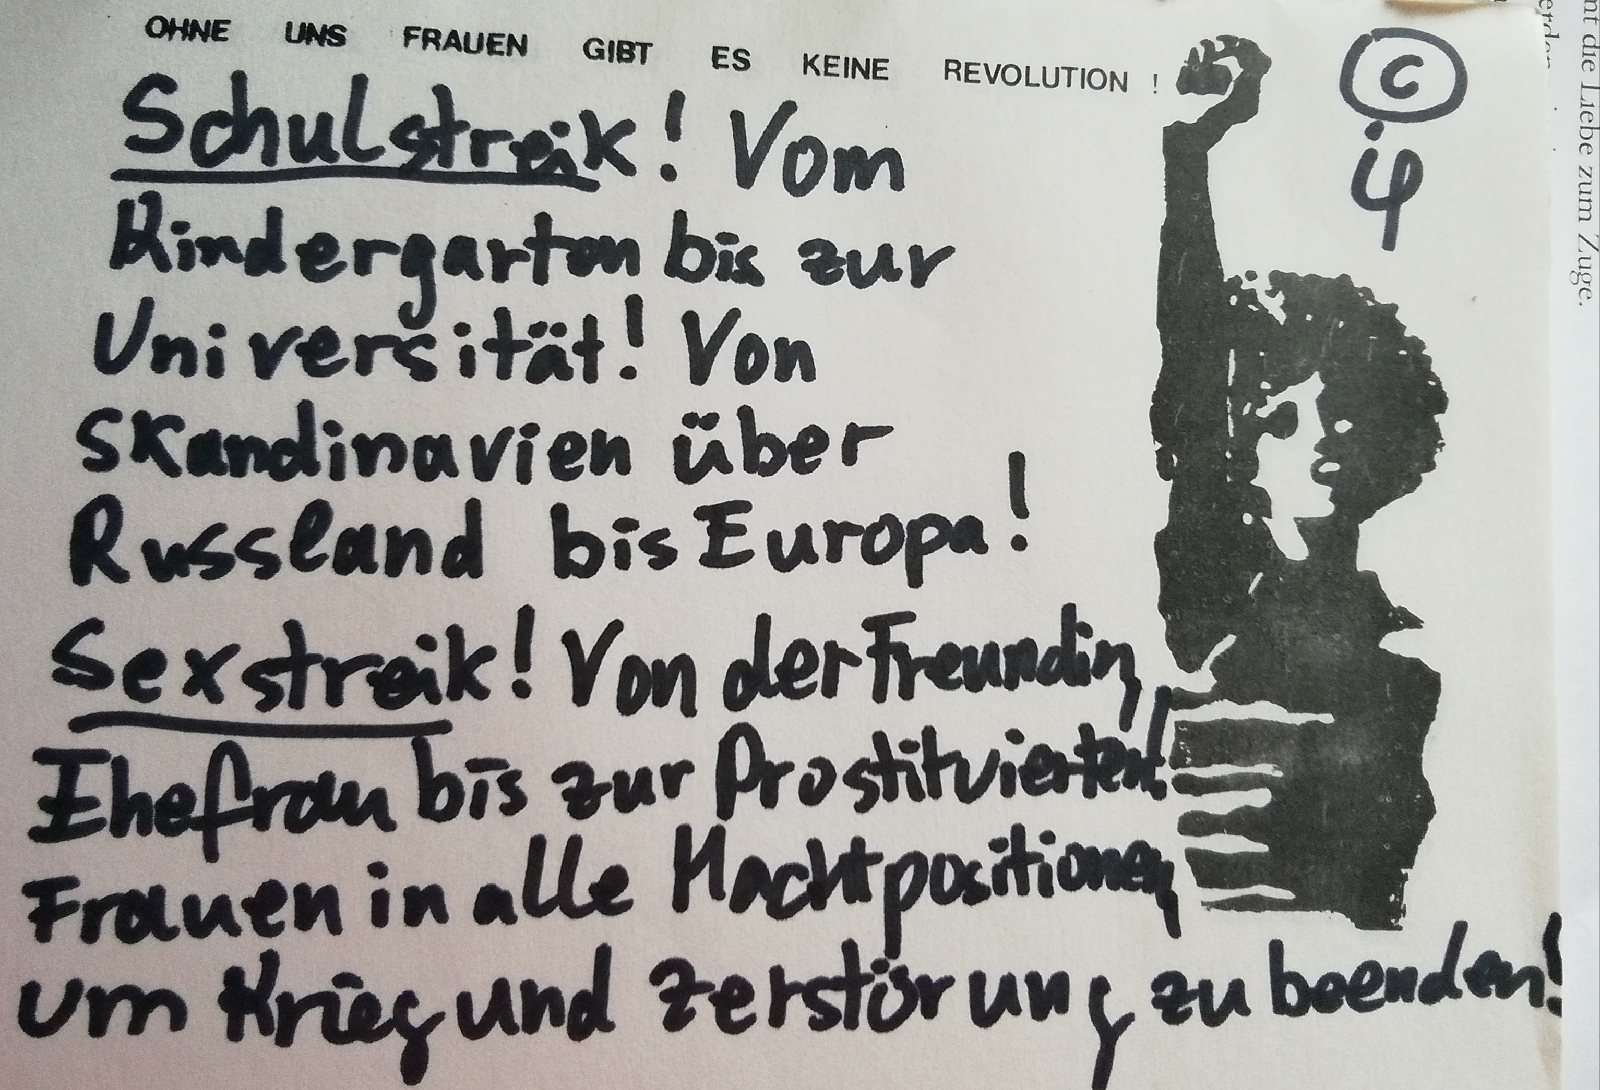 OHNE UNS FRAUEN GIBT ES KEINE REVOLUTION !
Schulstreik! Vom
Kindergarten bis zur
Universität! Von
Skandinavien über
Russland bis Europa!
Sexstreik! Von der Freundin,
Ehefrau bis zur Prostituierten!
Frauen in alle Machtpositionen,
um Krieg und Zerstörung zu beenden!
©
nt die Liebe zum Zuge.
erden